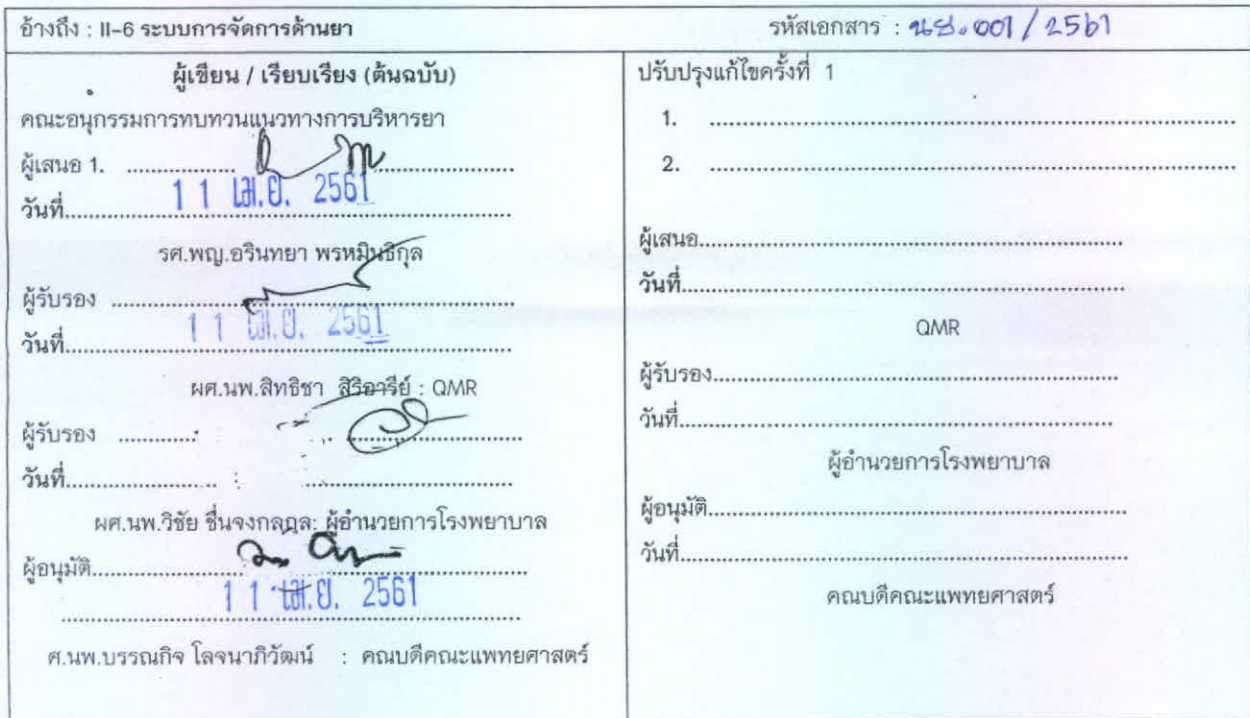 อ้างถึง : II-6 ระบบการจัดการด้านยา
รหัสเอกสาร : นย. 001 / 2561
ผู้เขียน / เรียบเรียง (ต้นฉบับ)
คณะอนุกรรมการทบทวนแนวทางการบริหารยา
ผู้เสนอ 1. ........................
วันที่........ 11 เม.ย. 2561
รศ.พญ.อรินทยา พรหมินธิกุล
ผู้รับรอง ........................
วันที่........ 11 เม.ย. 2561
ผศ.นพ.สิทธิชา สิริอารีย์ : QMR
ผู้รับรอง ........................
วันที่........................
ผศ.นพ.วิชัย ชื่นจงกลกุล: ผู้อำนวยการโรงพยาบาล
ผู้อนุมัติ........................
11 เม.ย. 2561
ศ.นพ.บรรณกิจ โลจนาภิวัฒน์ : คณบดีคณะแพทยศาสตร์
ปรับปรุงแก้ไขครั้งที่ 1
1. ........................
2. ........................
ผู้เสนอ........................
วันที่........................
QMR
ผู้รับรอง........................
วันที่........................
ผู้อำนวยการโรงพยาบาล
ผู้อนุมัติ........................
วันที่........................
คณบดีคณะแพทยศาสตร์